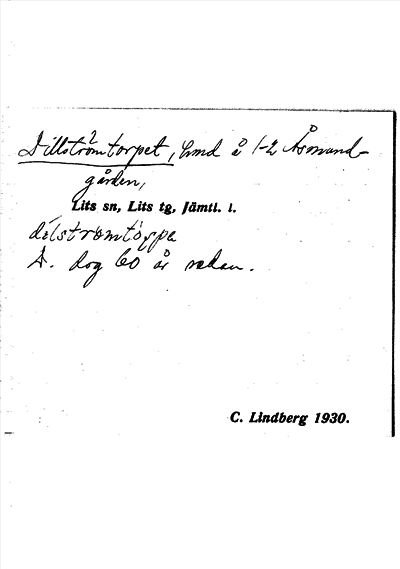 Dillströmtorpet, hmd å 1-2 Åsmund-
gården,
Lits sn, Lits tg, Jämtl. l.
dilströmtorpe
D. dog 60 år sedan.
C. Lindberg 1930.